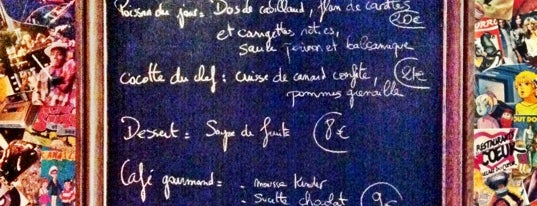 Poisson du jour = Dos de cabillaud, flan de carottes 20€
et courgettes rôties,
sauce poivron et balsamique
Cocotte du chef : cuisse de canard confite, 21€
pommes grenaille
Dessert = Soupe de fruits 8€
Café gourmand = - mousse Kinder
- sucette chocolat 9€
RESTAURANTS
DU
COEUR
OUT DO